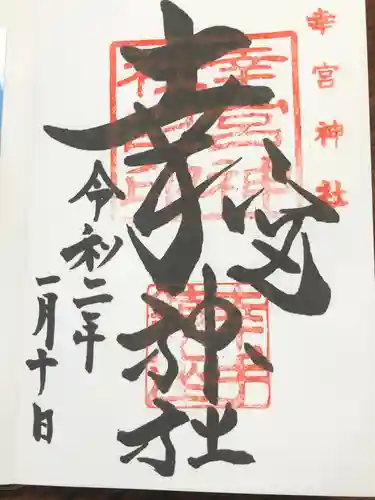 幸宮神社
幸宮神社
令和二年
一月十日
幸宮神
社印